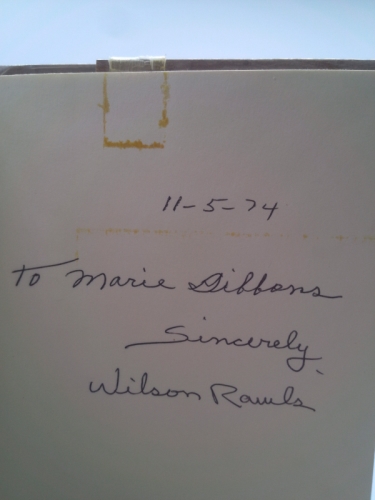 11-5-74
To Marie Gibbons
Sincerely,
Wilson Rawls